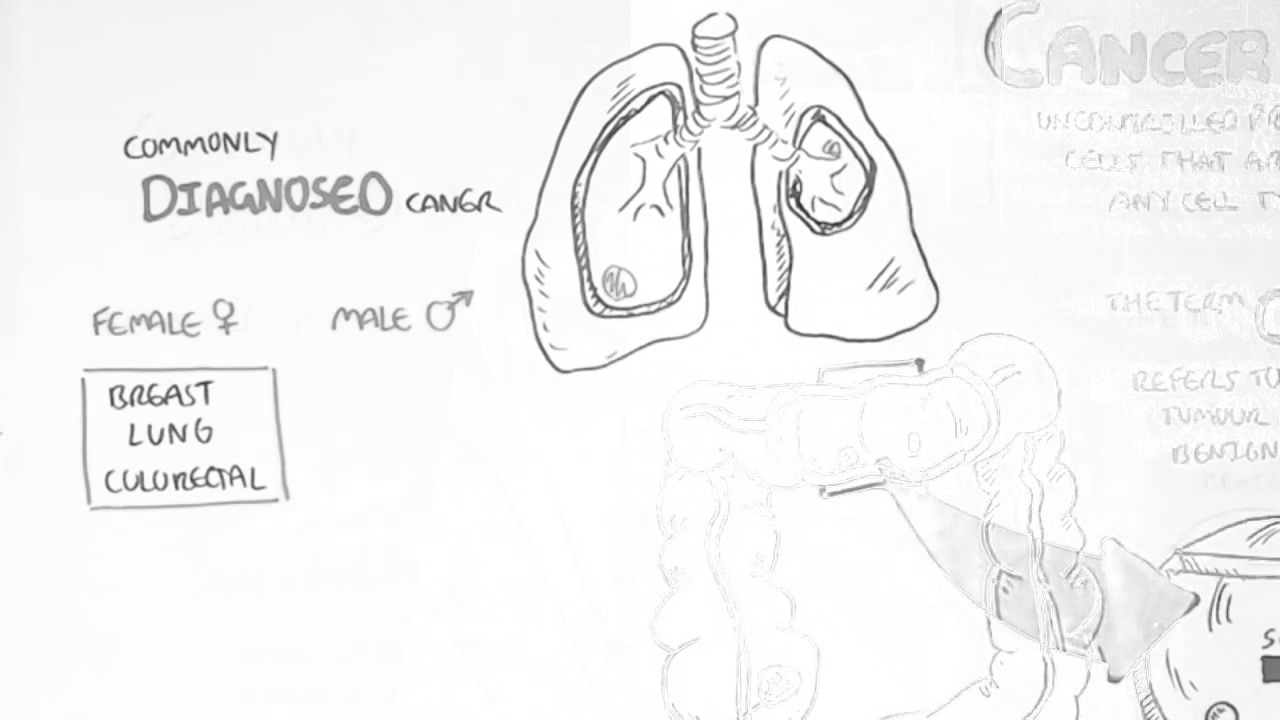 COMMONLY
DIAGNOSED CANER
FEMALE ♀ MALE ♂
BREAST
LUNG
COLORECTAL
CANCER
UNCONTROLLED
CELLS THAT
ANY CELL
THE TERM
REFERS
TUMOUR
BENIGN